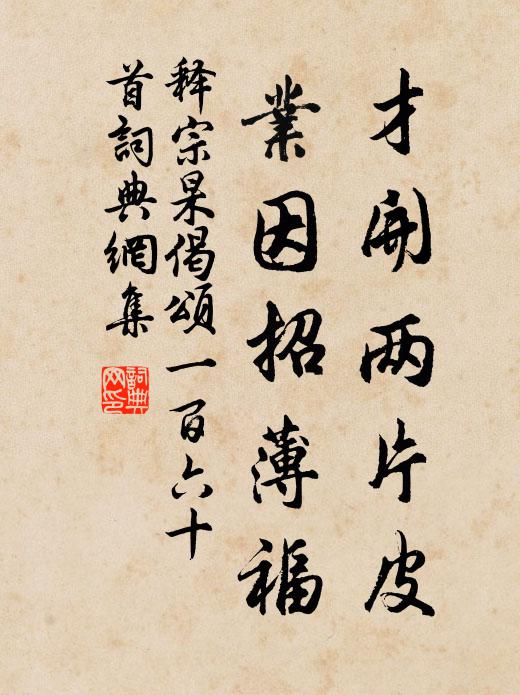 才開两片皮
業因招薄福
释宗杲偈頌一百六十
首詞典網集
詞典
网印